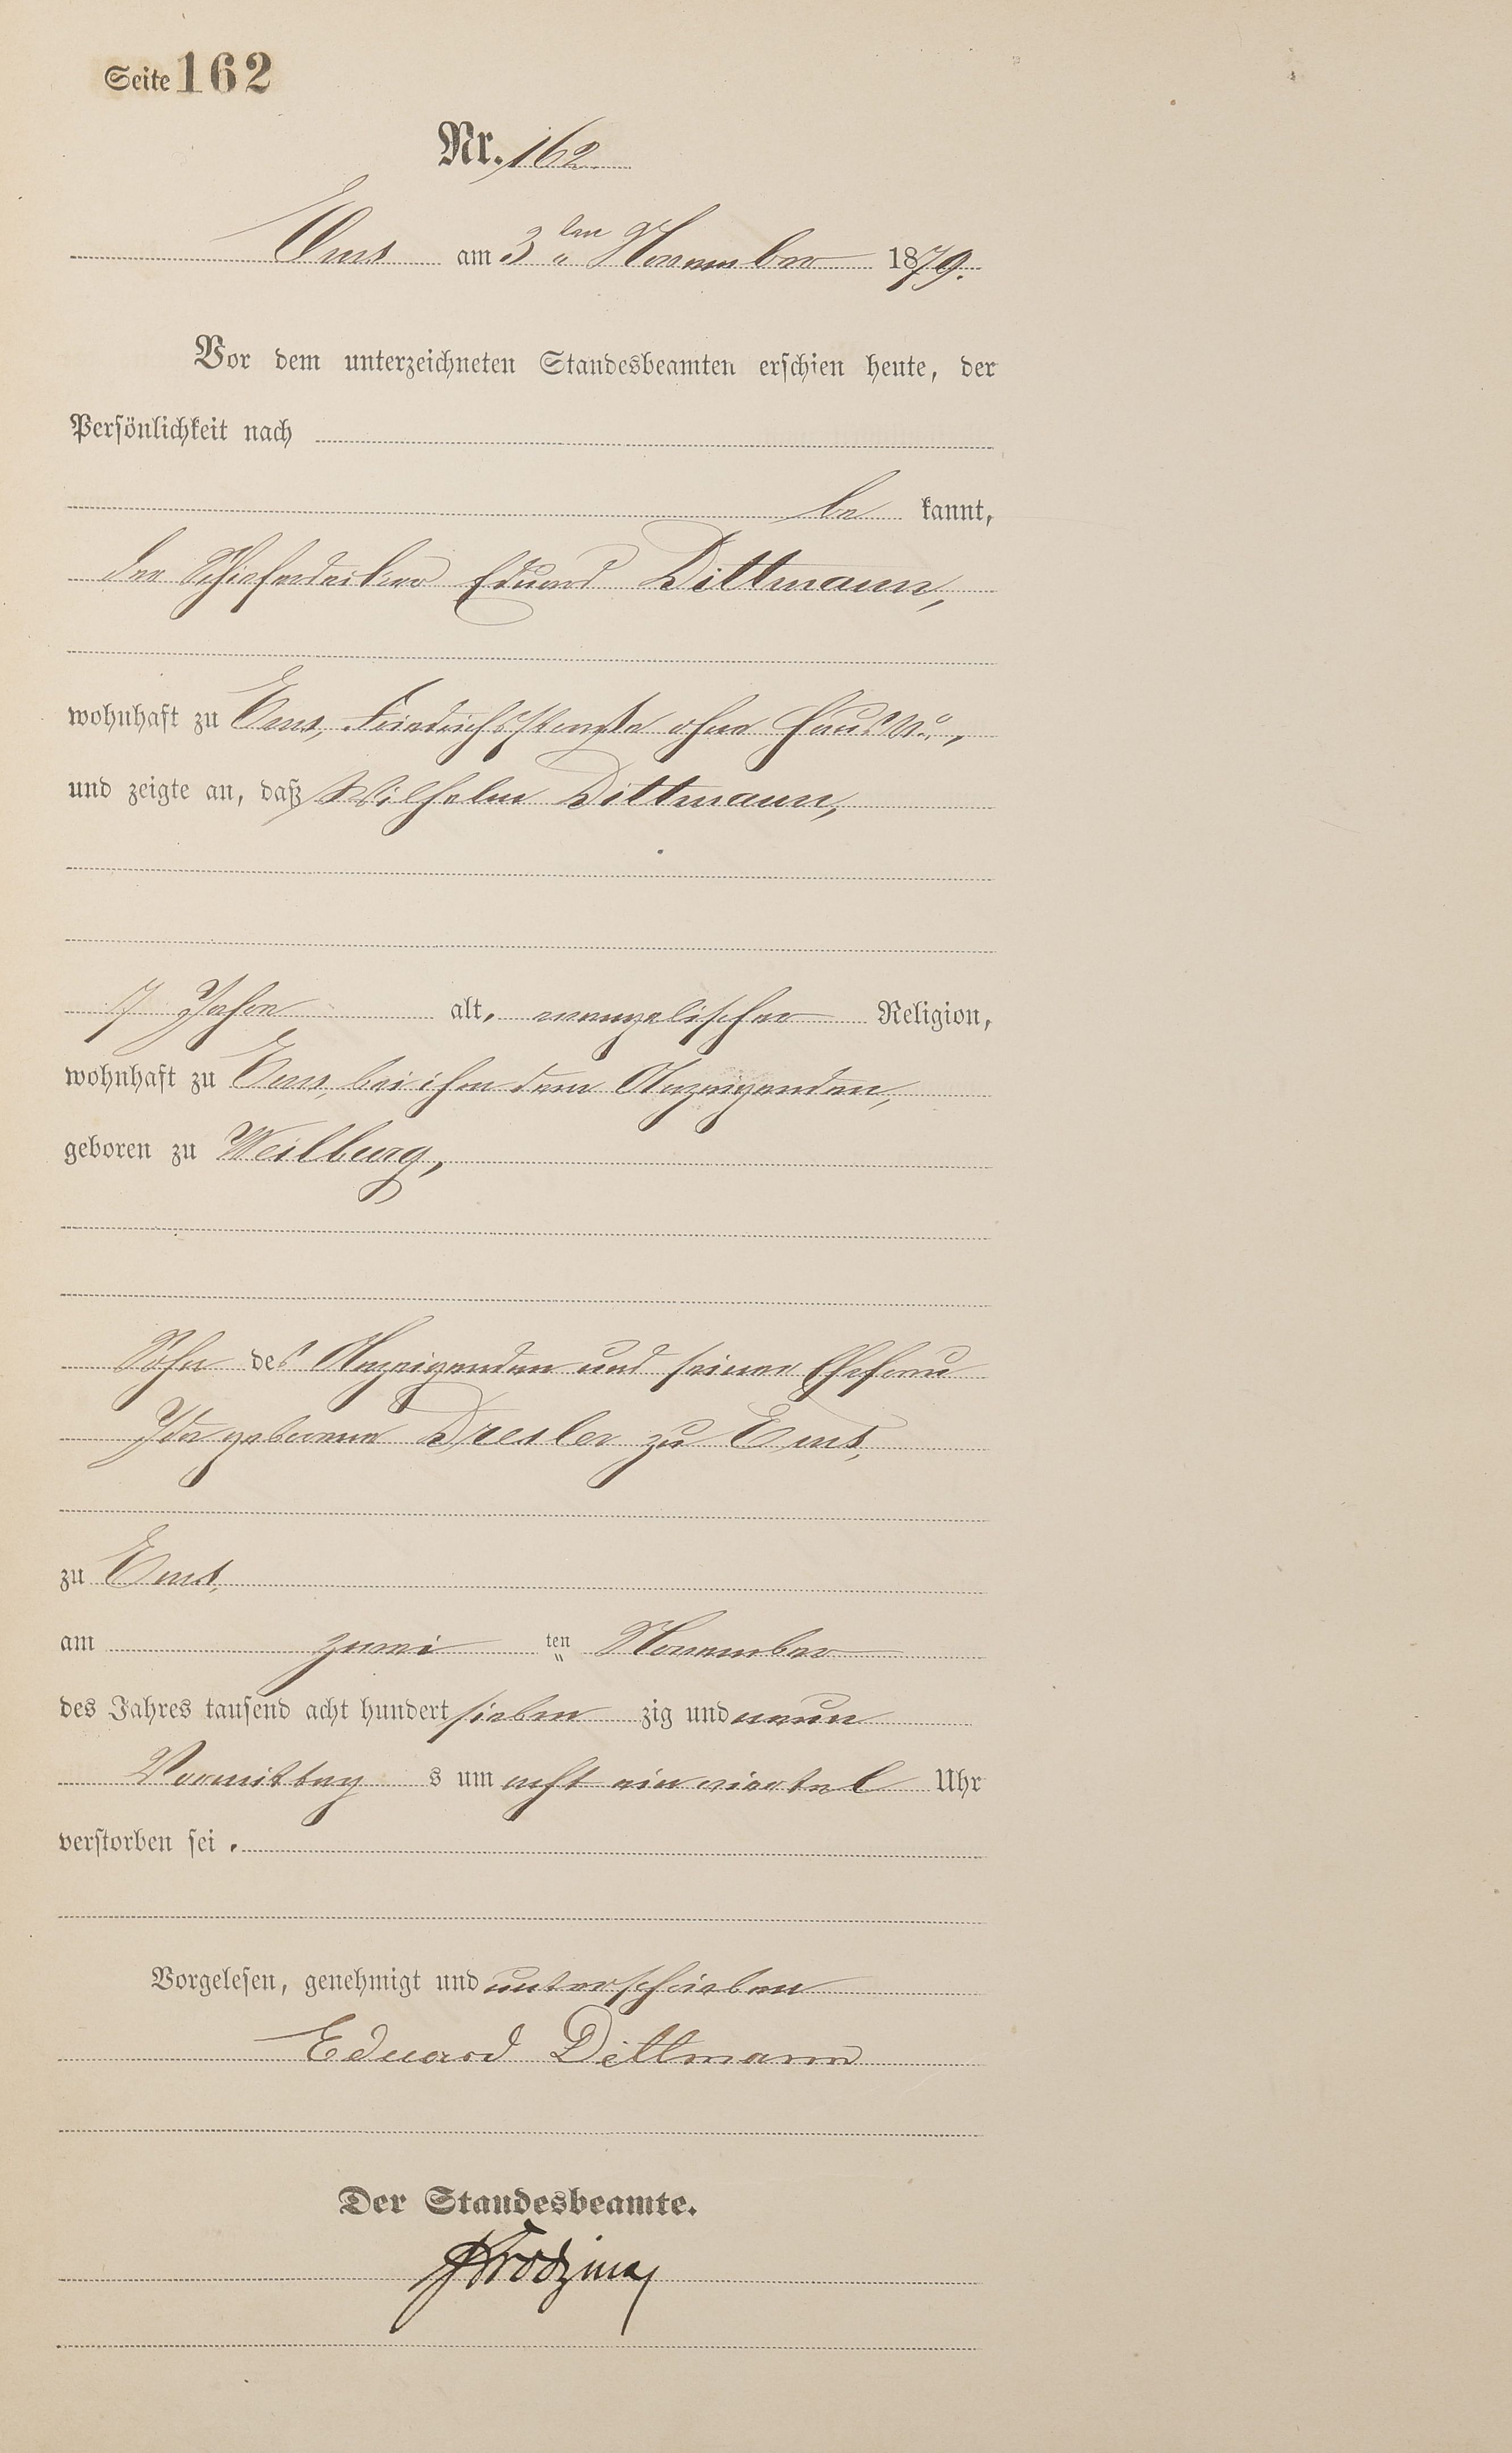 Seite 162
Nr. 162
Ems am 3ten November 1879.
Vor dem unterzeichneten Standesbeamten erschien heute, der
Persönlichkeit nach
be kannt,
der Schieferdecker Eduard Dittmann,
wohnhaft zu Ems, Friedrichsstraße ohne Haus No.,
und zeigte an, daß Wilhelm Dittmann,
7 Jahre alt, evangelischer Religion,
wohnhaft zu Ems, bei ihm dem Anzeigenden,
geboren zu Weilburg,
Sohn des Anzeigenden und seiner Ehefrau
Ida geborenen Dresler zu Ems,
zu Ems,
am zwei ten November
des Jahres tausend acht hundert sieben zig und neun
Vormittag s um acht ein viertel Uhr
verstorben sei.
Vorgelesen, genehmigt und unterschrieben
Eduard Dittmann
Der Standesbeamte.